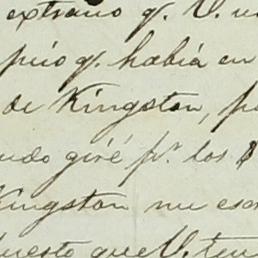 extraño q. V. 
pico q. habia en
de Kingston, p
udo giré pr. los $
Kingston me es
uesto que V. ten